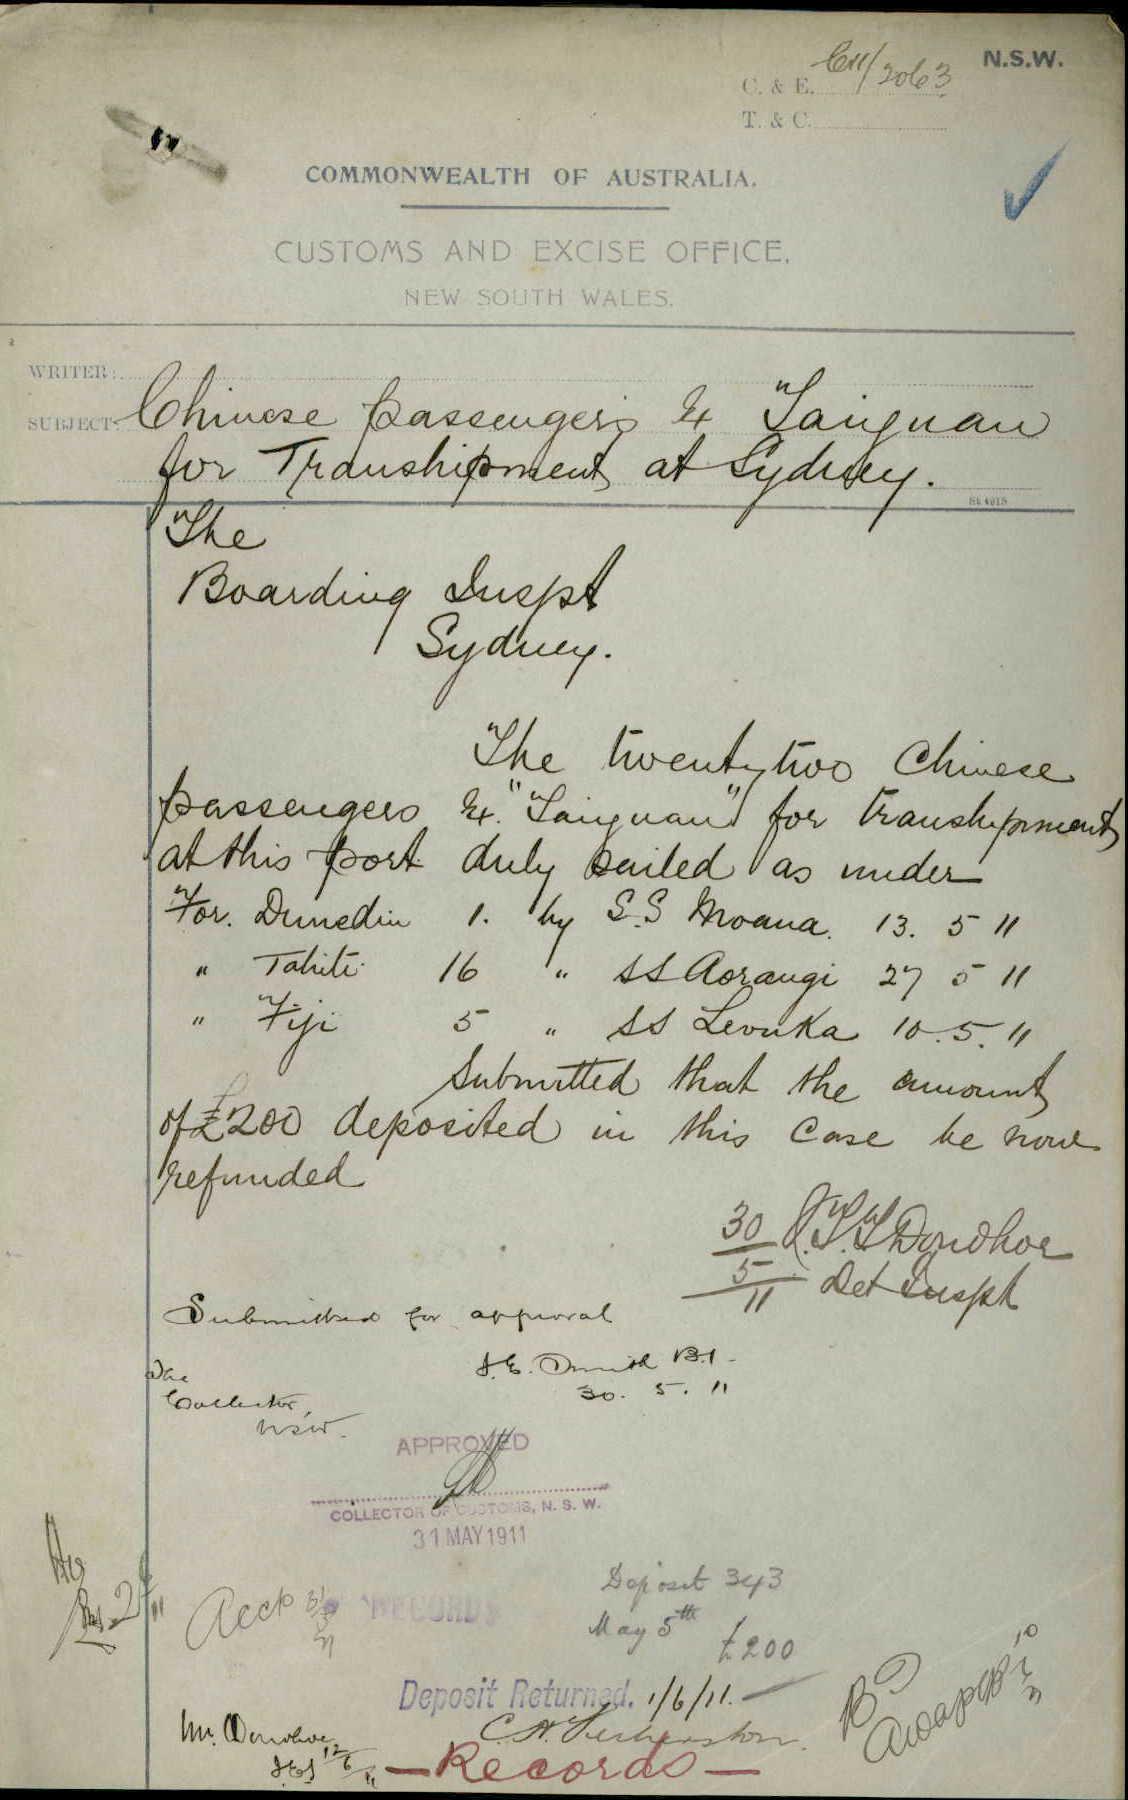 N.S.W.
C. & E. C11/2063
T. & C.
COMMONWEALTH OF AUSTRALIA.
CUSTOMS AND EXCISE OFFICE.
NEW SOUTH WALES.
WRITER:
SUBJECT: Chinese passengers Ex Taiyuan
for Transhipment at Sydney.
The
Boarding Inspt
Sydney.
The twenty two Chinese
passengers Ex. "Taiyuan" for transhipment
at this port duly sailed as under
For. Dunedin 1. by S.S Moana. 13. 5 11
" Tahiti 16 " SS Aorangi 27 5 11
" Fiji 5 " SS Levuka 10. 5. 11
Submitted that the amount
of £200 deposited in this case be now
refunded
30/5/11 J.T.T Donohoe
Det Inspt
Submitted for approval
The
Collector
NSW.
B.I.
30. 5. 11
APPROVED
COLLECTOR OF CUSTOMS, N. S. W.
31 MAY 1911
Deposit 343
May 5th £200
RECORDS
Deposit Returned. 1/6/11.
Mr. Donohoe
12/6/11
— Records —